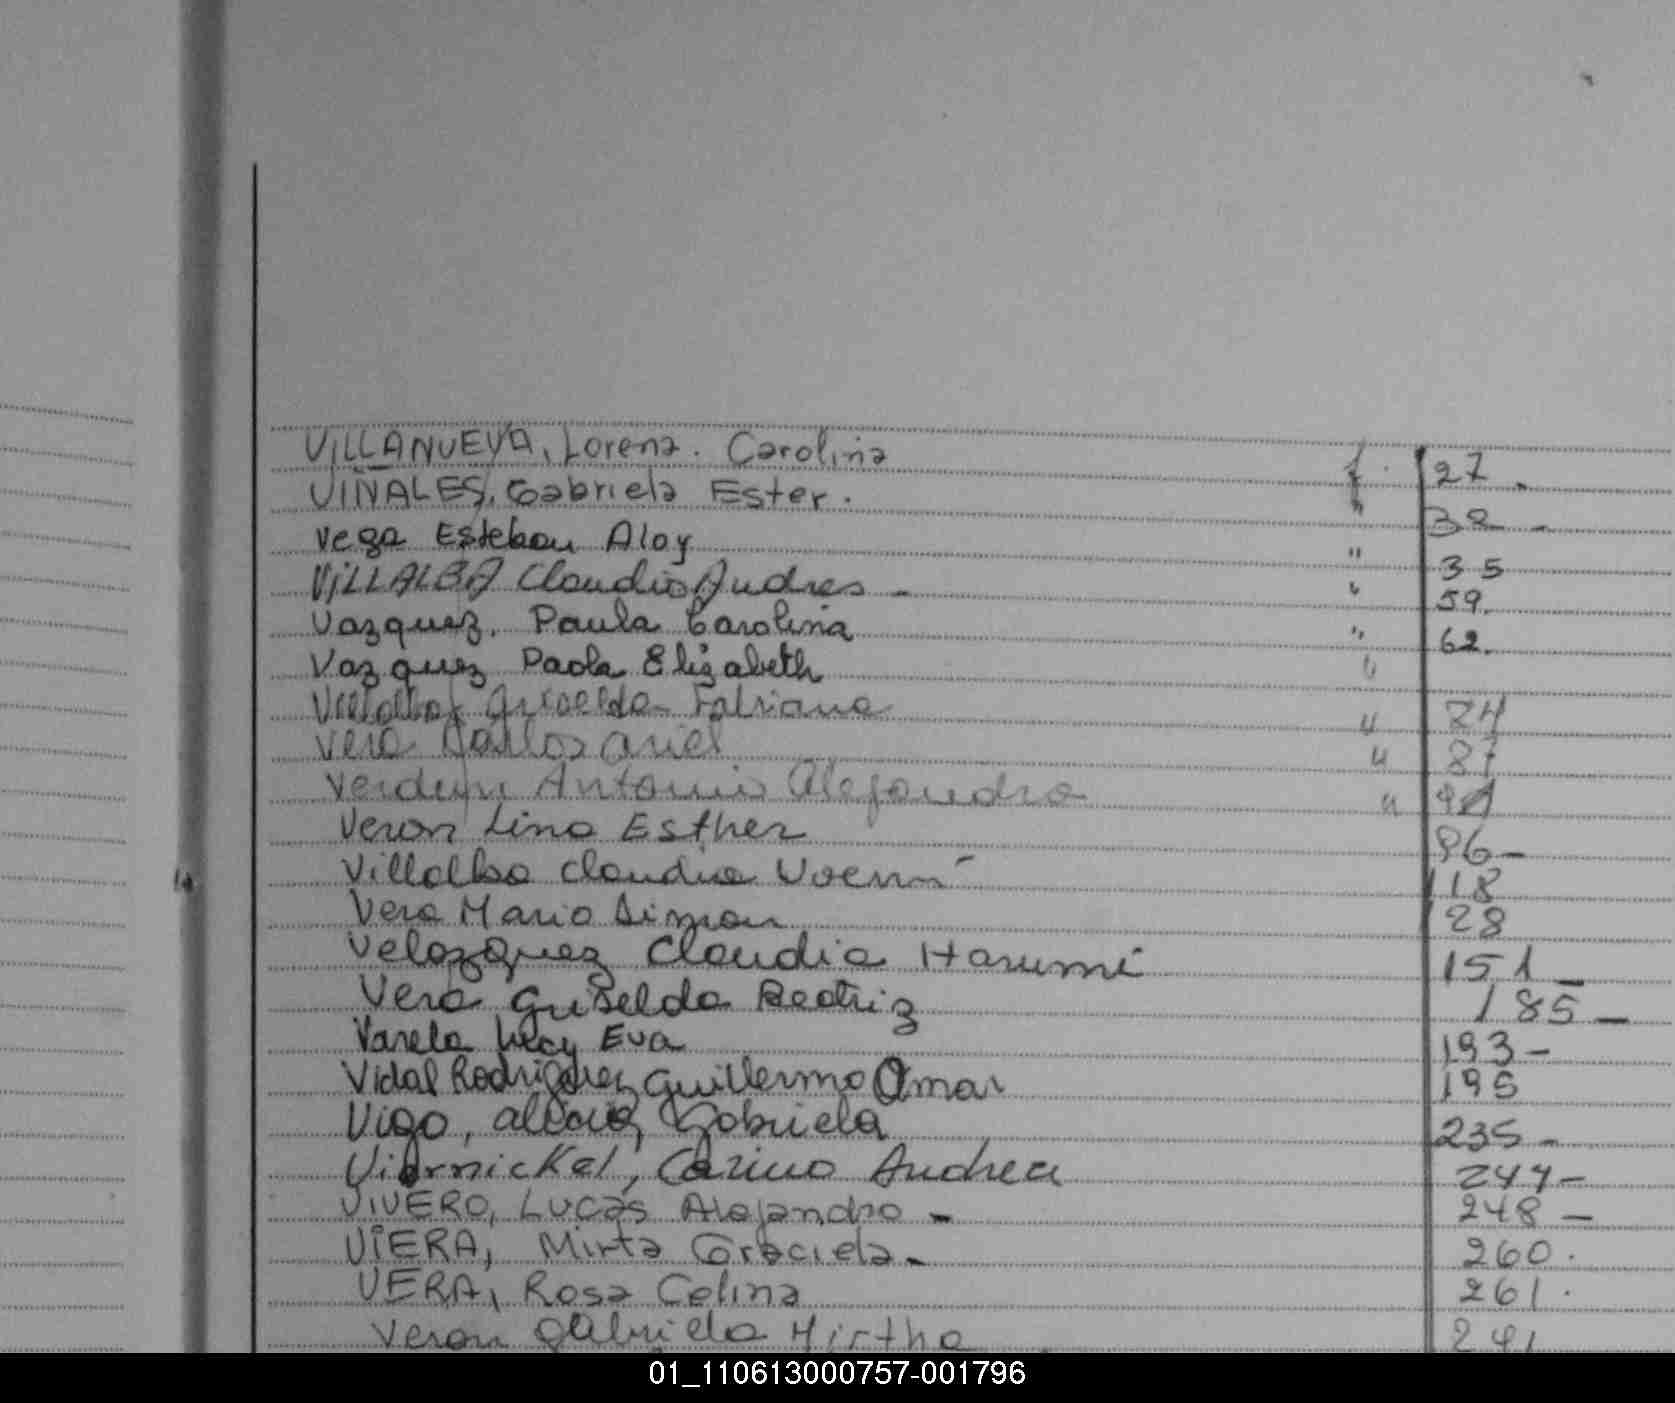 VILLANUEVA, Lorena. Carolina f. 27.
VIÑALES, Gabriela Ester. " 32 -
Vega Esteban Aloy " 35
VILLALBA Claudio Andres - " 59.
Vazquez, Paula Carolina " 62.
Vazquez Paola Elizabeth "
Villalba Griselda Fabiana " 74
Vera Carlos Ariel " 87
Verdun Antonio Alejandro " 91
Veron Lino Esther 96 -
Villalba Claudia Noemí 118
Vera Mario Simon 128
Velazquez Claudia Harumi 151 -
Vera Griselda Beatriz 185 -
Varela Lucy Eva 193 -
Vidal Rodriguez Guillermo Omar 195
Vigo, Gabriela 235 -
Viernickel, Carina Andrea 247 -
VIVERO, Lucas Alejandro - 248 -
VIERA, Mirta Graciela - 260.
VERA, Rosa Celina 261.
Veron Gabriela Mirtha 291
01_110613000757-001796